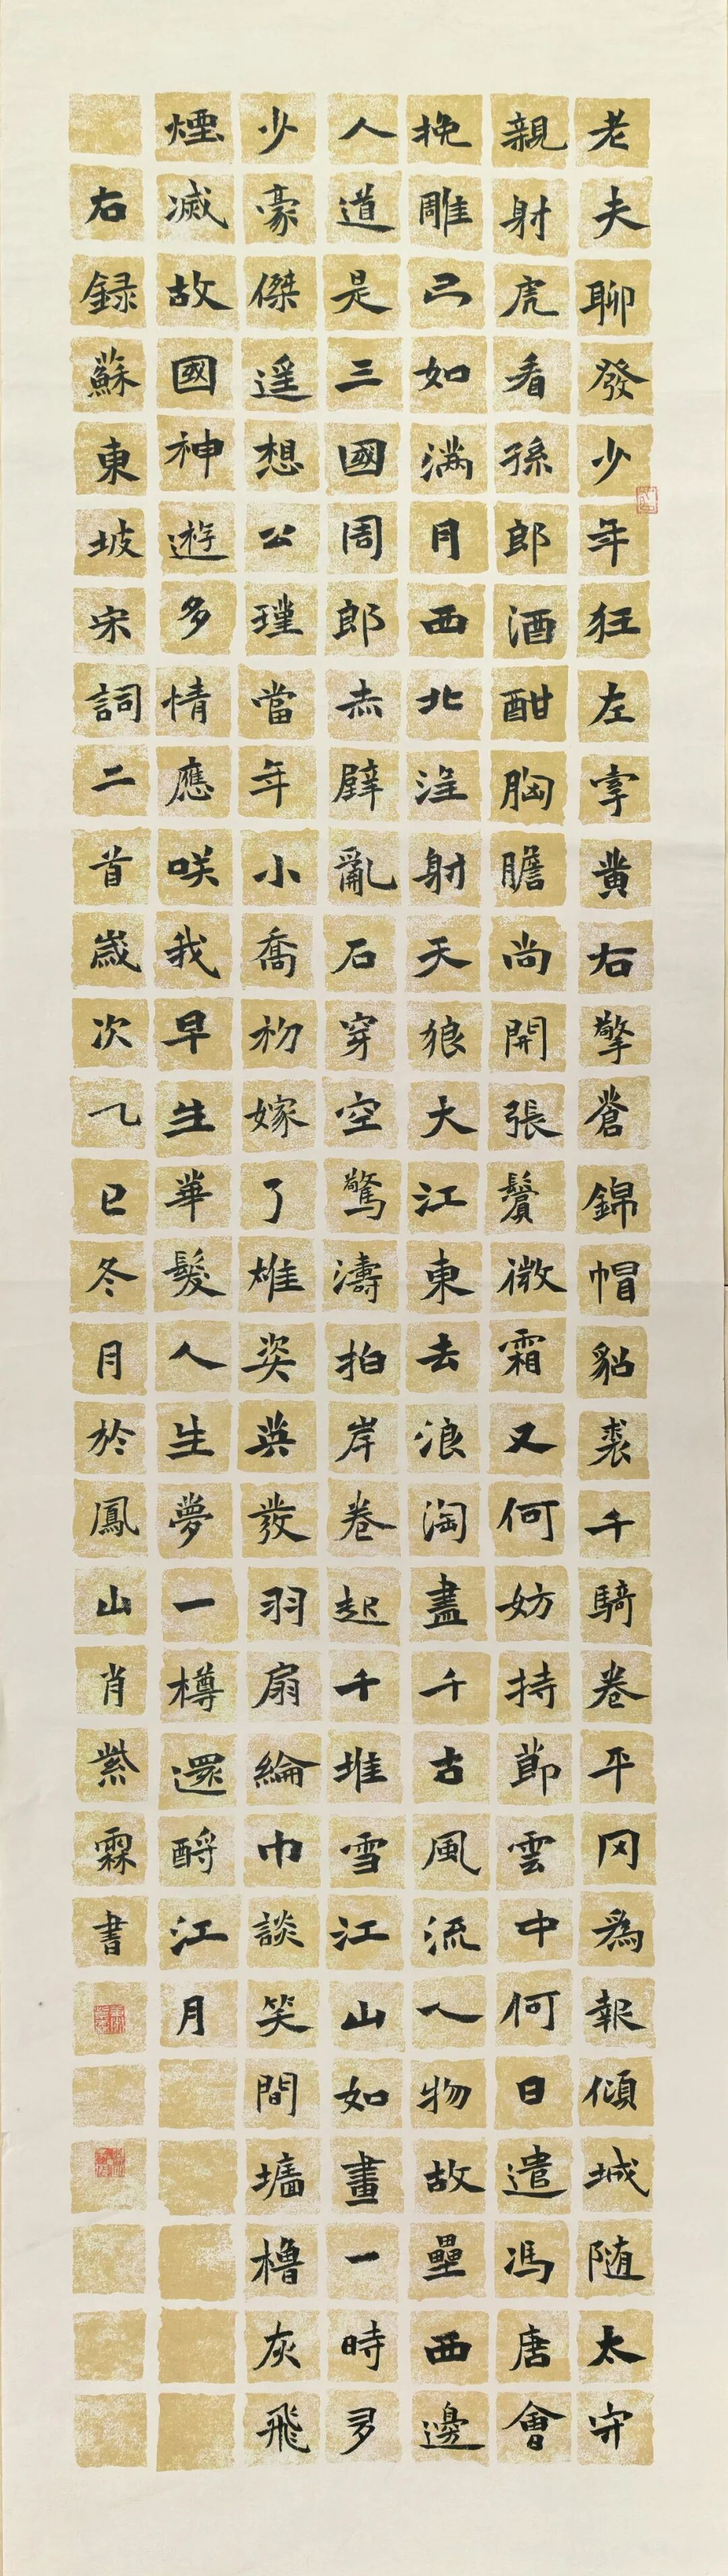 老夫聊發少年狂左牽黃右擎蒼錦帽貂裘千騎卷平冈為報傾城随太守
親射虎看孫郎酒酣胸膽尚開張鬢微霜又何妨持節雲中何日遣馮唐會
挽雕弓如滿月西北望射天狼大江東去浪淘盡千古風流人物故壘西邊
人道是三國周郎赤壁亂石穿空驚濤拍岸卷起千堆雪江山如畫一時多
少豪傑遥想公瑾當年小喬初嫁了雄姿英發羽扇綸巾談笑間墻櫓灰飛
煙滅故國神遊多情應咲我早生華髮人生夢一樽還酹江月
右録蘇東坡宋詞二首歲次乙巳冬月於鳳山肖紫霖書